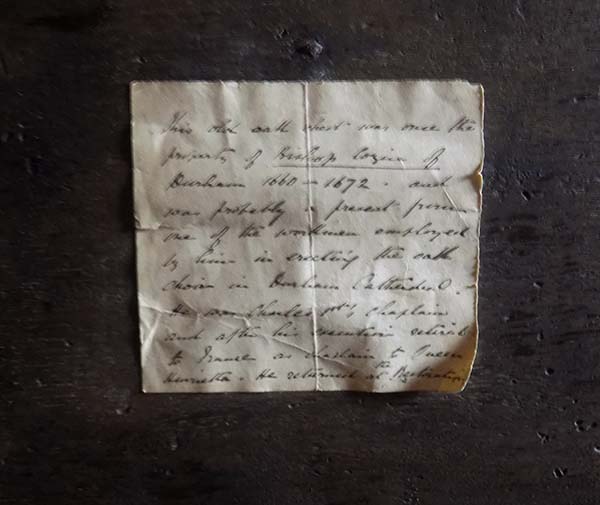 This old oak chest was once the
property of Bishop Cozin of
Durham 1660 – 1672 . and
was probably a present from
one of the workmen employed
by him in erecting the oak
choir in Durham Cathedral . –
He was Charles 1st's chaplain
and after his execution retired
to France as chaplain to Queen
Henrietta . He returned at the Restoration